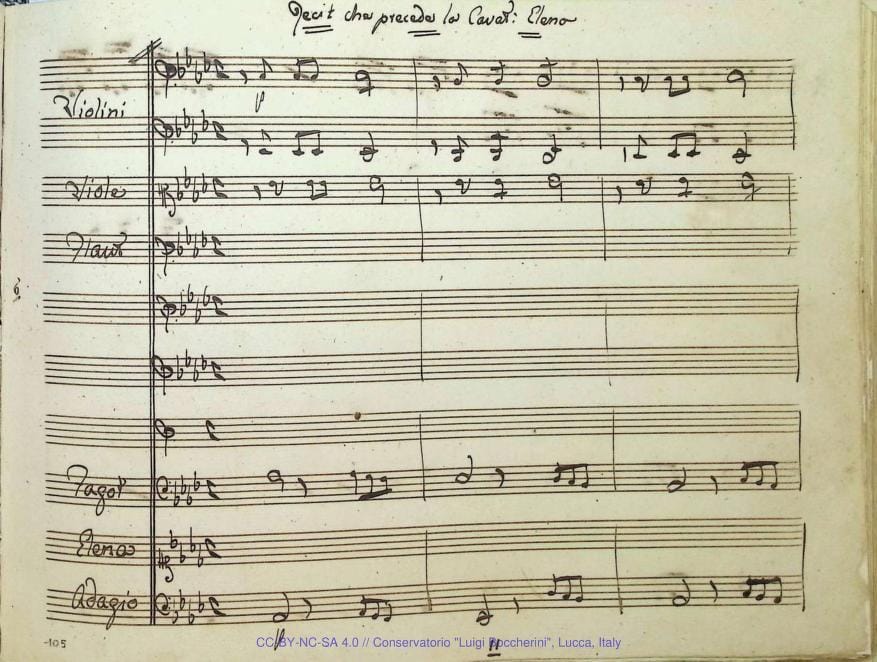 Recit che precede la Cavat: Elena
Violini
p
Viole
Flaut
6
Fagot
Elena
Adagio
p
-105
CC-BY-NC-SA 4.0 // Conservatorio "Luigi Boccherini", Lucca, Italy